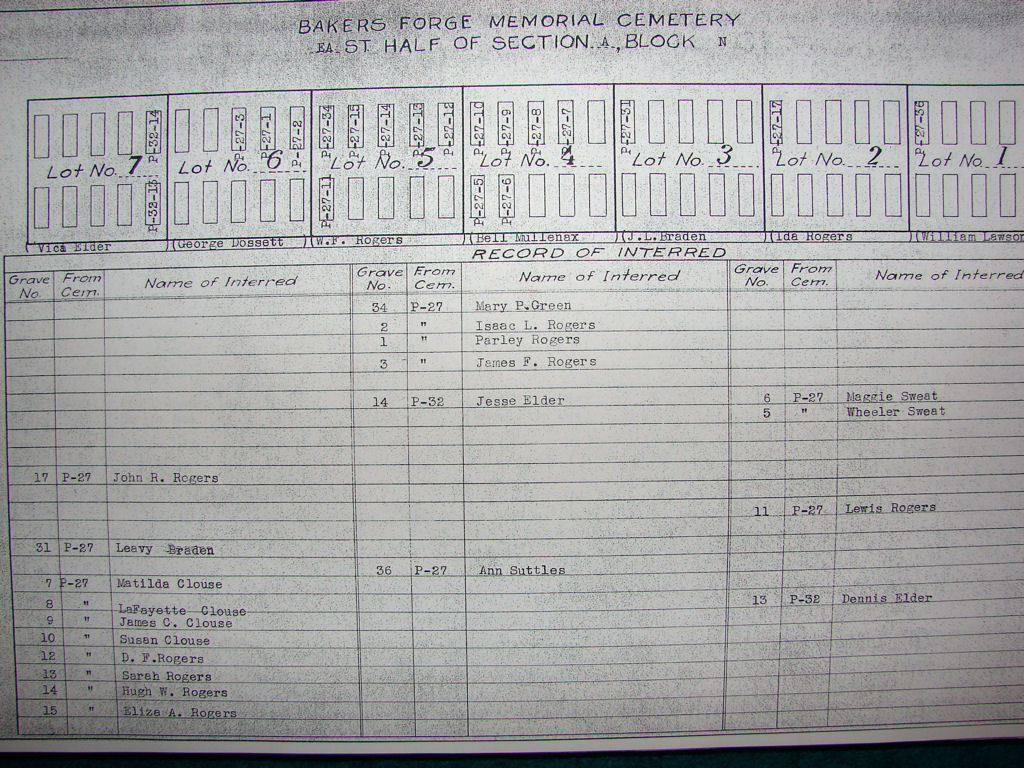 BAKERS FORGE MEMORIAL CEMETERY
EAST HALF OF SECTION A, BLOCK N
P-32-14
P-27-3
P-27-1
P-27-2
P-27-34
P-27-15
P-27-14
P-27-13
P-27-12
P-27-10
P-27-9
P-27-8
P-27-7
P-27-31
P-27-17
P-27-36
Lot No. 7
Lot No. 6
Lot No. 5
Lot No. 4
Lot No. 3
Lot No. 2
Lot No. 1
P-32-13
P-27-11
P-27-5
P-27-6
(Vica Elder
(George Dossett
(W.F. Rogers
(Bell Mullenax
(J.L.Braden
(Ida Rogers
(William Lawson
RECORD OF INTERRED
Grave No. From Cem. Name of Interred
Grave No. From Cem. Name of Interred
Grave No. From Cem. Name of Interred
34 P-27 Mary P.Green
2 " Isaac L. Rogers
1 " Parley Rogers
3 " James F. Rogers
14 P-32 Jesse Elder
6 P-27 Maggie Sweat
5 " Wheeler Sweat
17 P-27 John R. Rogers
11 P-27 Lewis Rogers
31 P-27 Leavy Braden
36 P-27 Ann Suttles
7 P-27 Matilda Clouse
13 P-32 Dennis Elder
8 " LaFayette Clouse
9 " James C. Clouse
10 " Susan Clouse
12 " D. F.Rogers
13 " Sarah Rogers
14 " Hugh W. Rogers
15 " Eliza A. Rogers